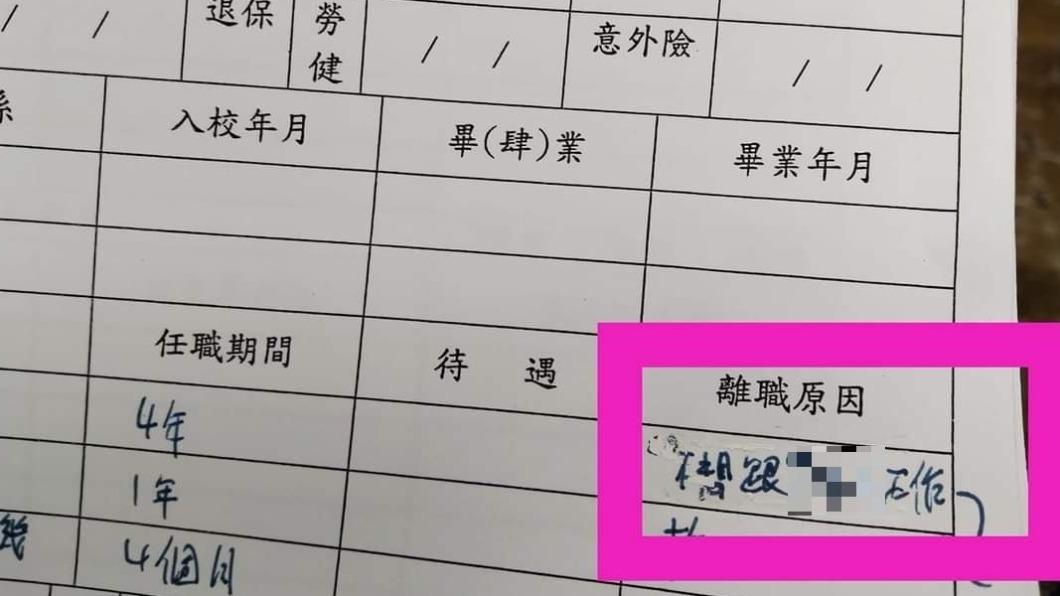 / / 退保 勞健 / / 意外險 / /
係 入校年月 畢(肆)業 畢業年月
任職期間 待 遇 離職原因
4年 想跟 工作
1年
幾 4個月